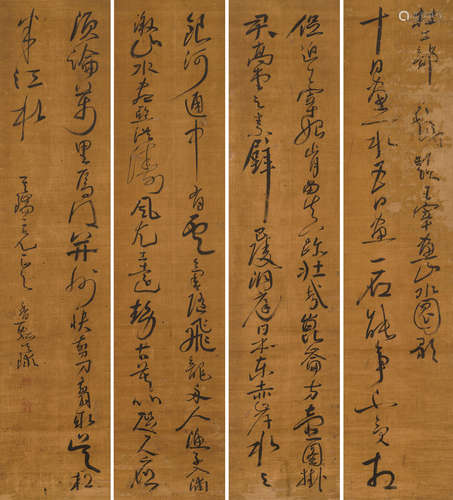 杜工部 戲題王宰畫山水圖歌
十日畫一水五日畫一石能事不受相
促迫王宰始肯留真跡壯哉崑崙方壺圖掛
君高堂之素壁巴陵洞庭日本東赤岸水與
銀河通中有雲氣隨飛龍舟人漁子入浦
漵山木盡亞洪濤風尤工遠勢古莫比咫尺應
須論萬里焉得并州快剪刀剪取吳松
半江水